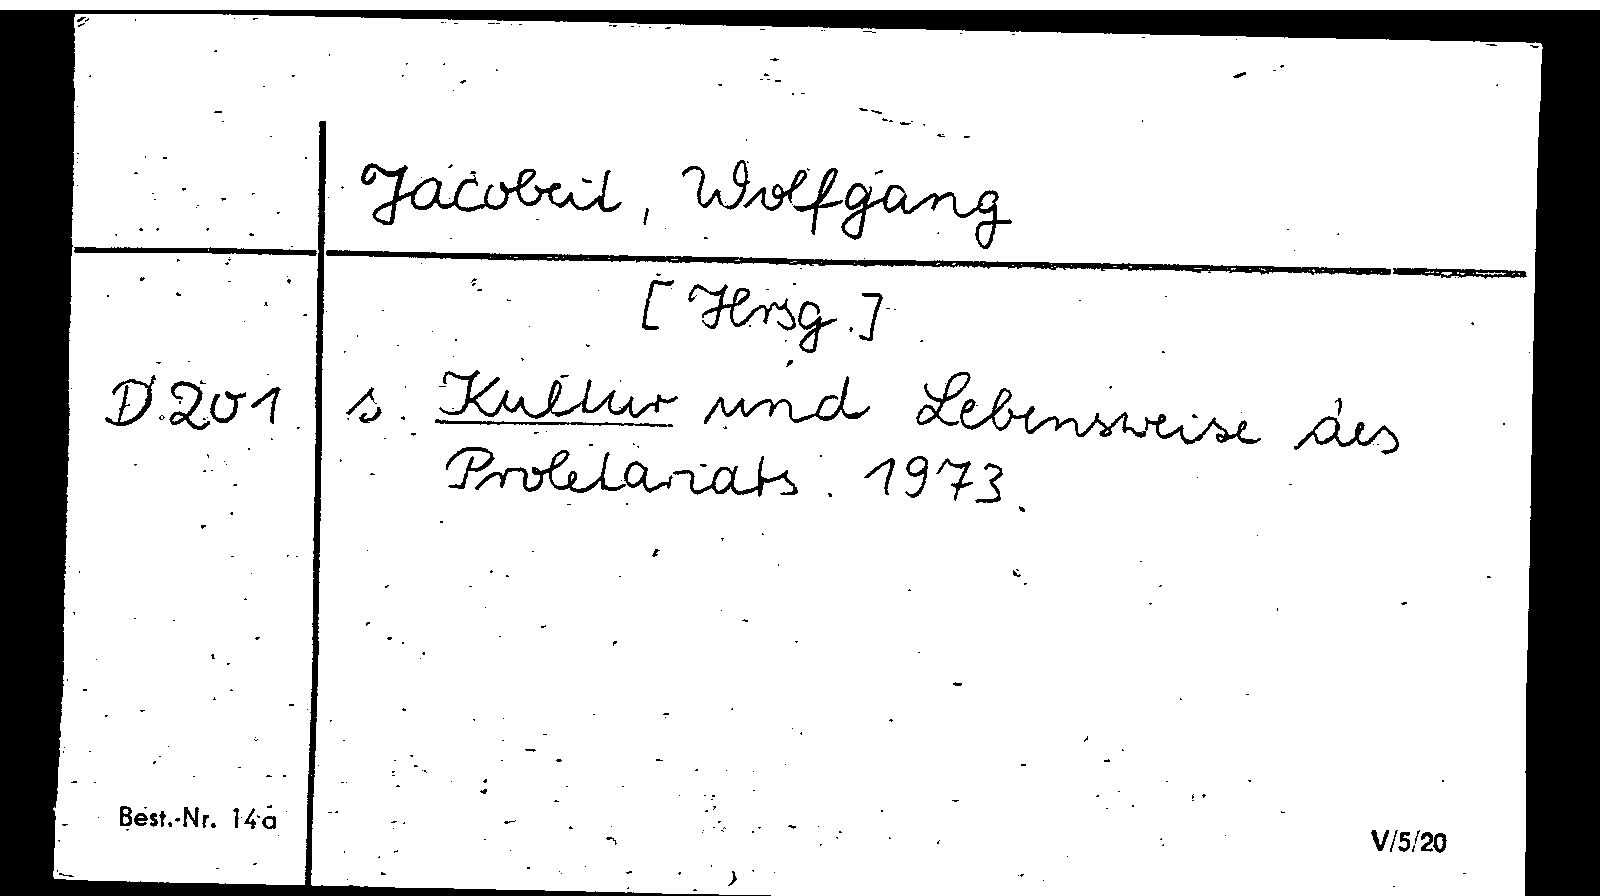 Jacobeit, Wolfgang
[Hrsg.]
D 201 s. Kultur und Lebensweise des
Proletariats. 1973.
Best.-Nr. 14a
V/5/20